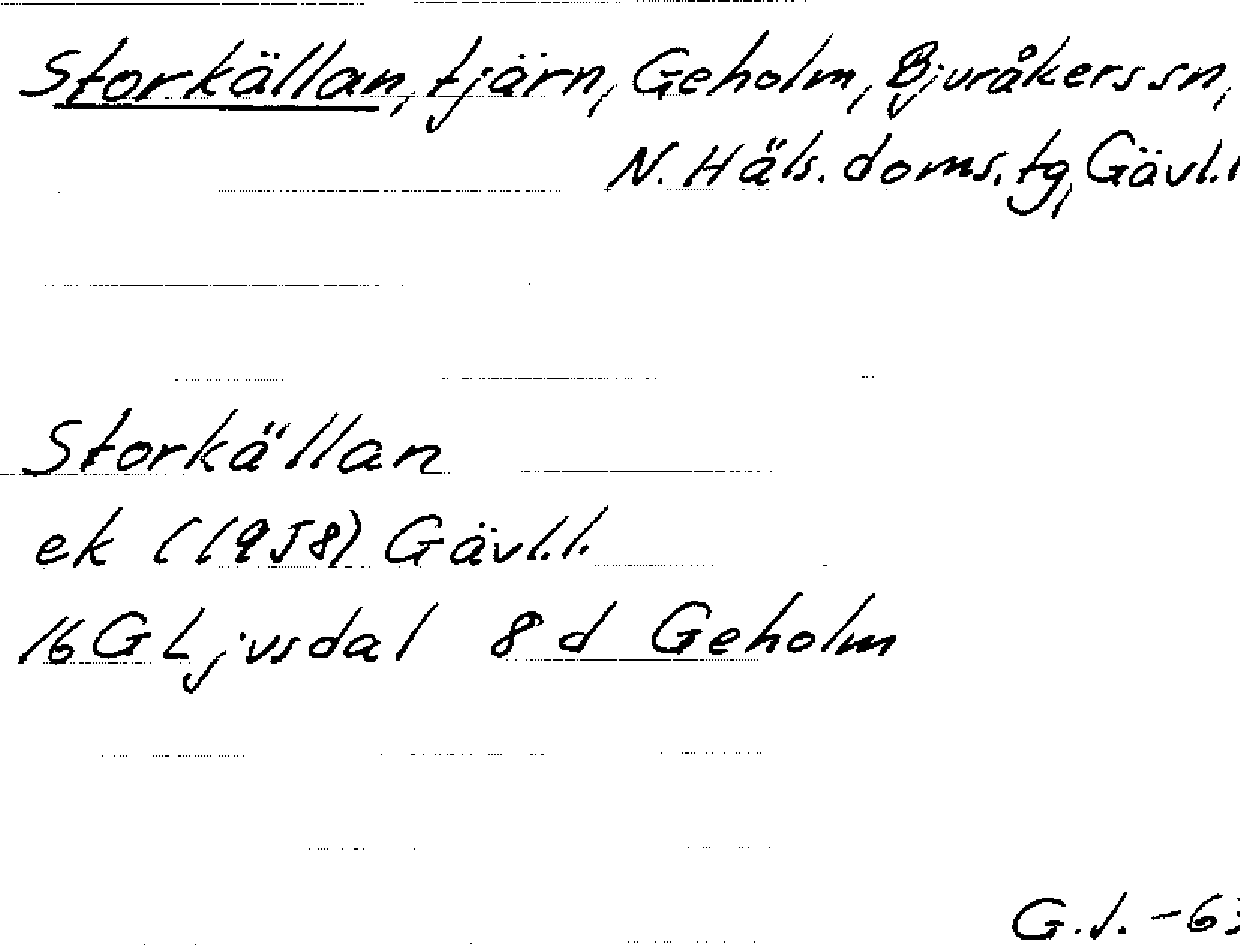 Storkällan, tjärn, Geholm, Bjuråkers sn,
N. Häls. doms. tg, Gävl.l
Storkällan
ek (1958) Gävl.l.
16 G Ljusdal 8 d Geholm
G.J. -63